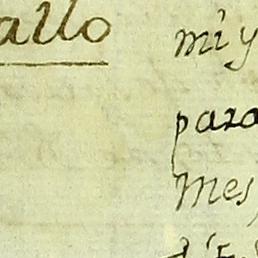 allo
mi y
para
Mes,